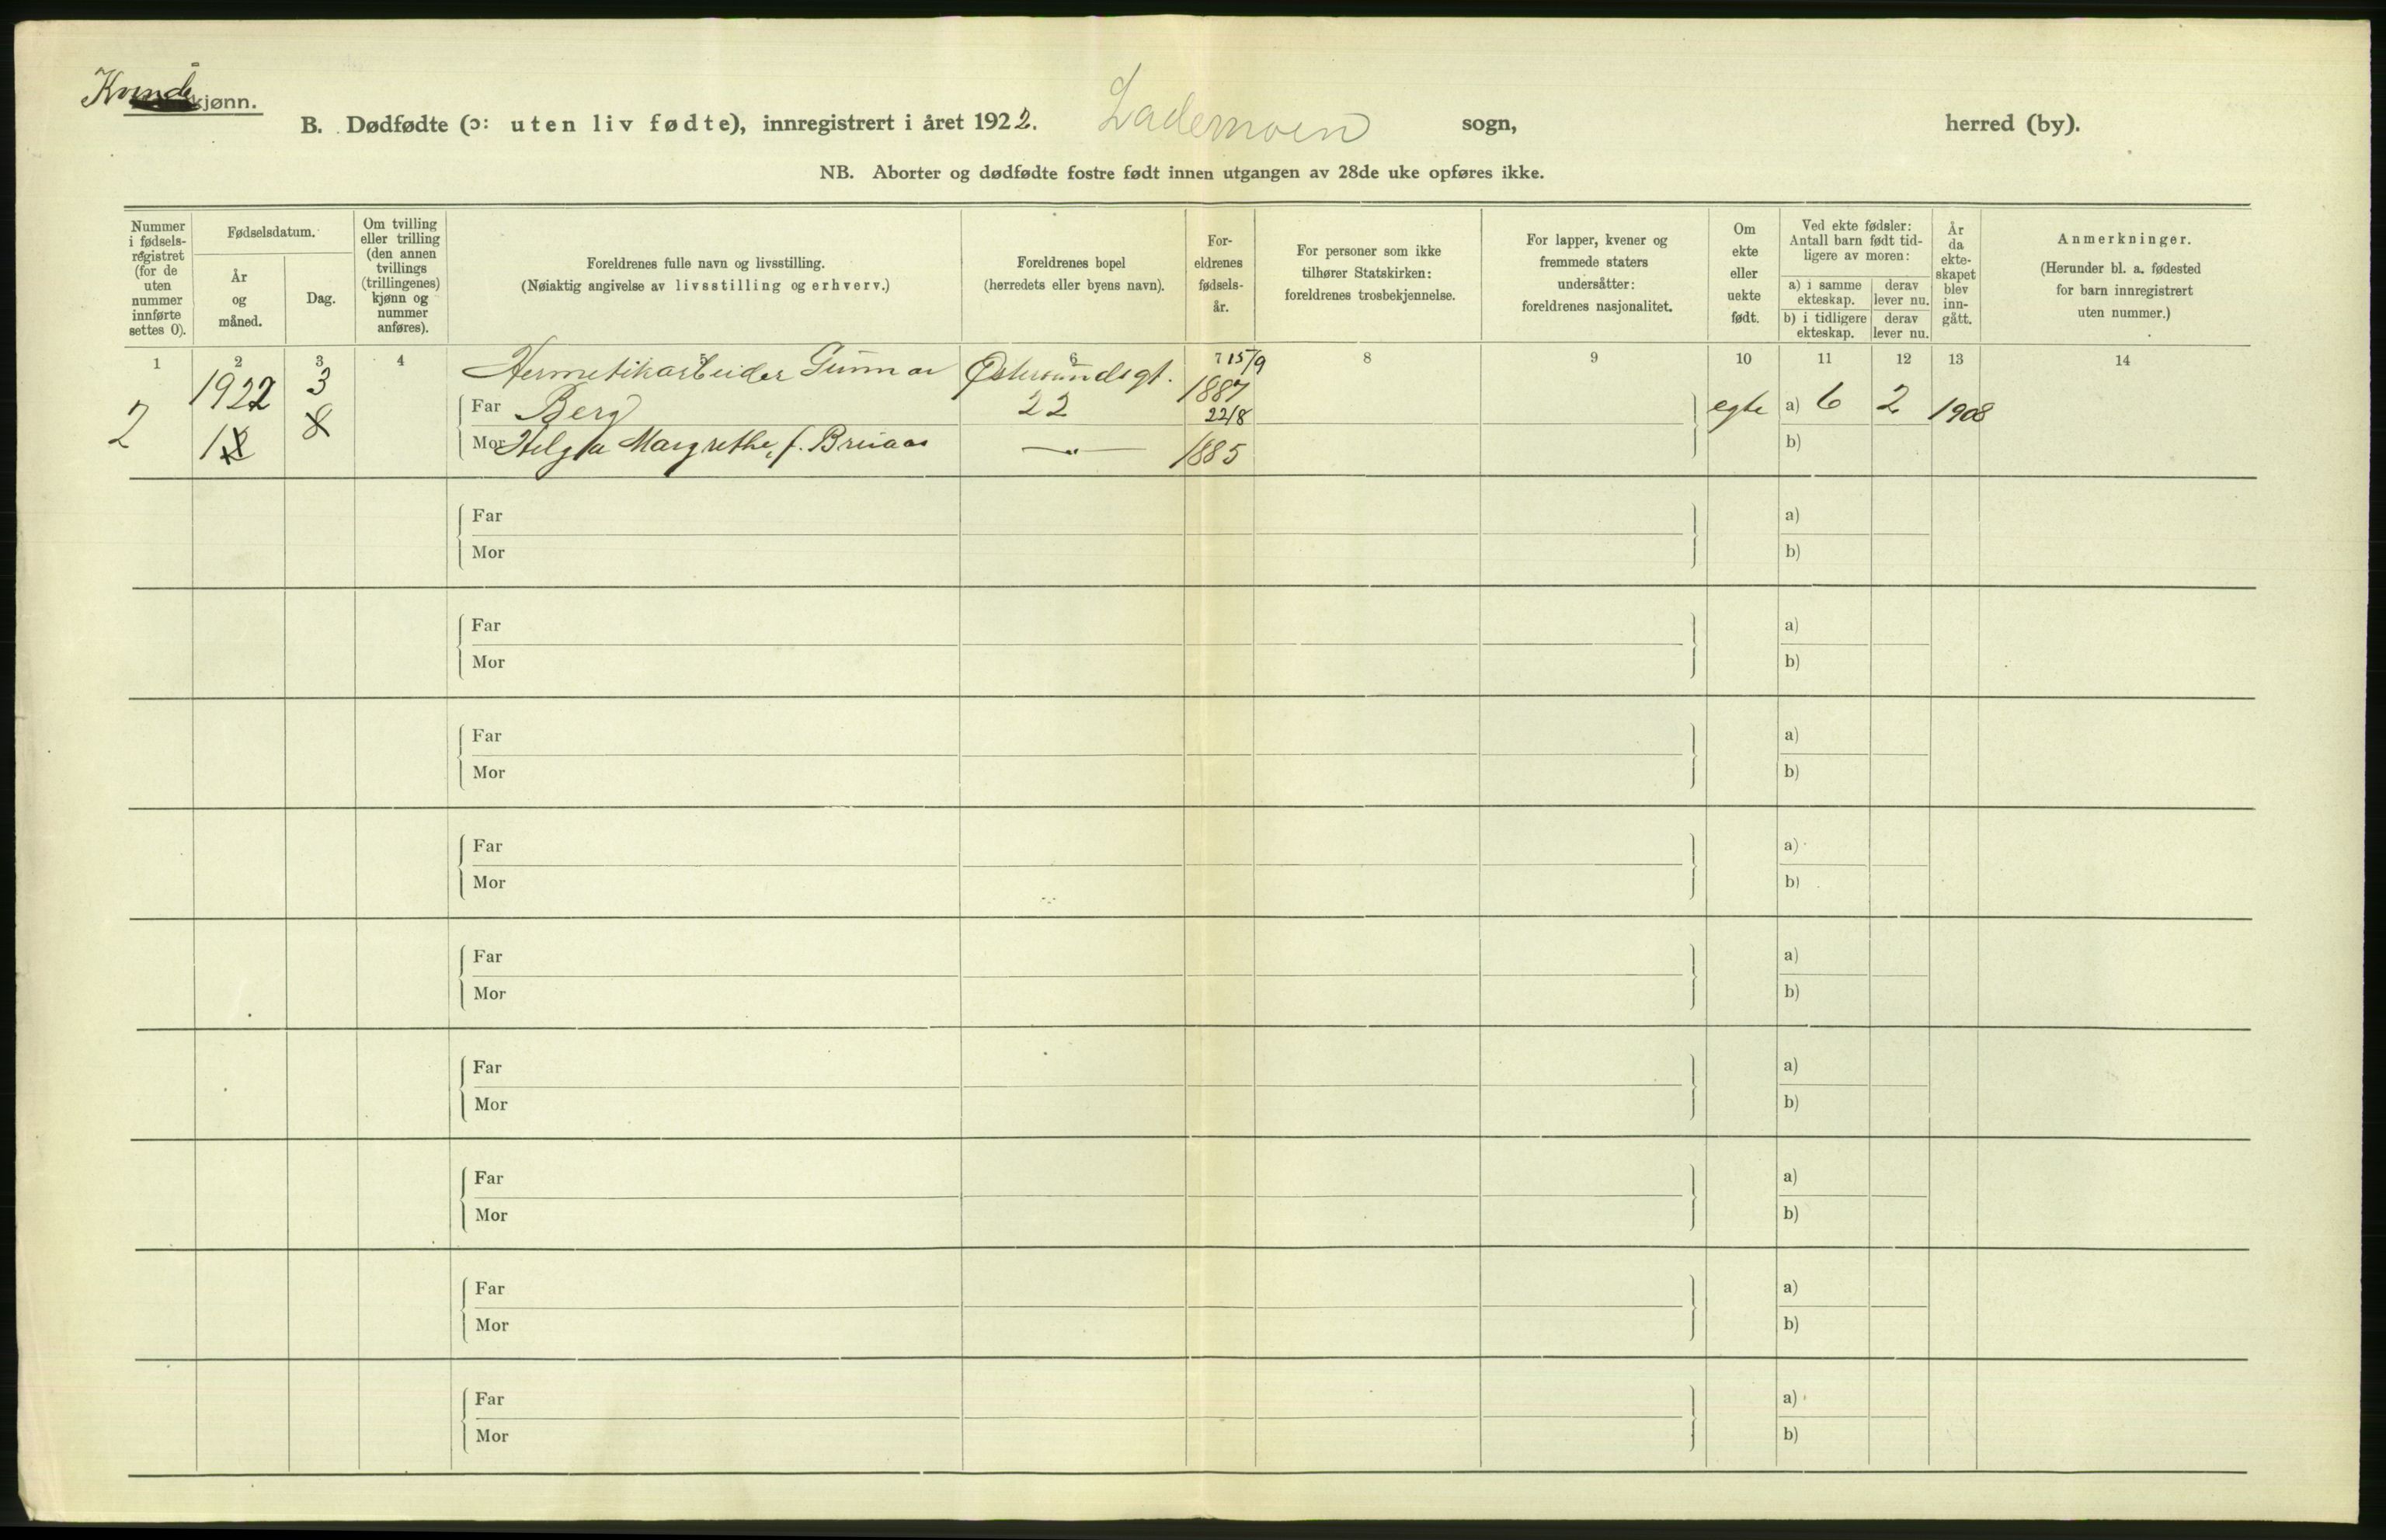 Kvinde kjønn.
B. Dødfødte (ɔ: uten liv fødte), innregistrert i året 1922. Lademoen sogn, herred (by).
NB. Aborter og dødfødte fostre født innen utgangen av 28de uke opføres ikke.
Nummer i fødsels-registret (for de uten nummer innførte settes 0).
Fødselsdatum.
År og måned.
Dag.
Om tvilling eller trilling (den annen tvillings (trillingenes) kjønn og nummer anføres).
Foreldrenes fulle navn og livsstilling.
(Nøiaktig angivelse av livsstilling og erhverv.)
Foreldrenes bopel
(herredets eller byens navn).
For-eldrenes fødsels-år.
For personer som ikke tilhører Statskirken: foreldrenes trosbekjennelse.
For lapper, kvener og fremmede staters undersåtter: foreldrenes nasjonalitet.
Om ekte eller uekte født.
Ved ekte fødsler: Antall barn født tid-ligere av moren:
a) i samme ekteskap. derav lever nu.
b) i tidligere ekteskap. derav lever nu.
År da ekte-skapet blev inn-gått.
Anmerkninger.
(Herunder bl. a. fødested for barn innregistrert uten nummer.)
1 2 3 4 5 6 7 8 9 10 11 12 13 14
Hermetikarbeider Gunnar Østersundsgt. 15/9
2 1922 3 Far Berg 22 1887 egte a) 6 2 1908
12 8 22/8
Mor Helga Margrethe, f. Bruaas —"— 1885 b)
Far a)
Mor b)
Far a)
Mor b)
Far a)
Mor b)
Far a)
Mor b)
Far a)
Mor b)
Far a)
Mor b)
Far a)
Mor b)
Far a)
Mor b)
Far a)
Mor b)